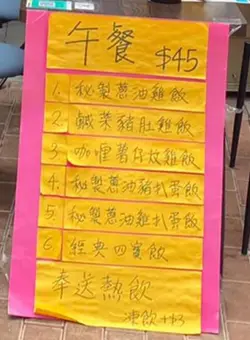 午餐 $45
1. 秘製蔥油雞飯
2. 鹹菜豬肚雞飯
3. 咖喱薯仔炆雞飯
4. 秘製蔥油豬扒蛋飯
5. 秘製蔥油雞扒蛋飯
6. 經典四寶飯
奉送熱飲
凍飲+$3